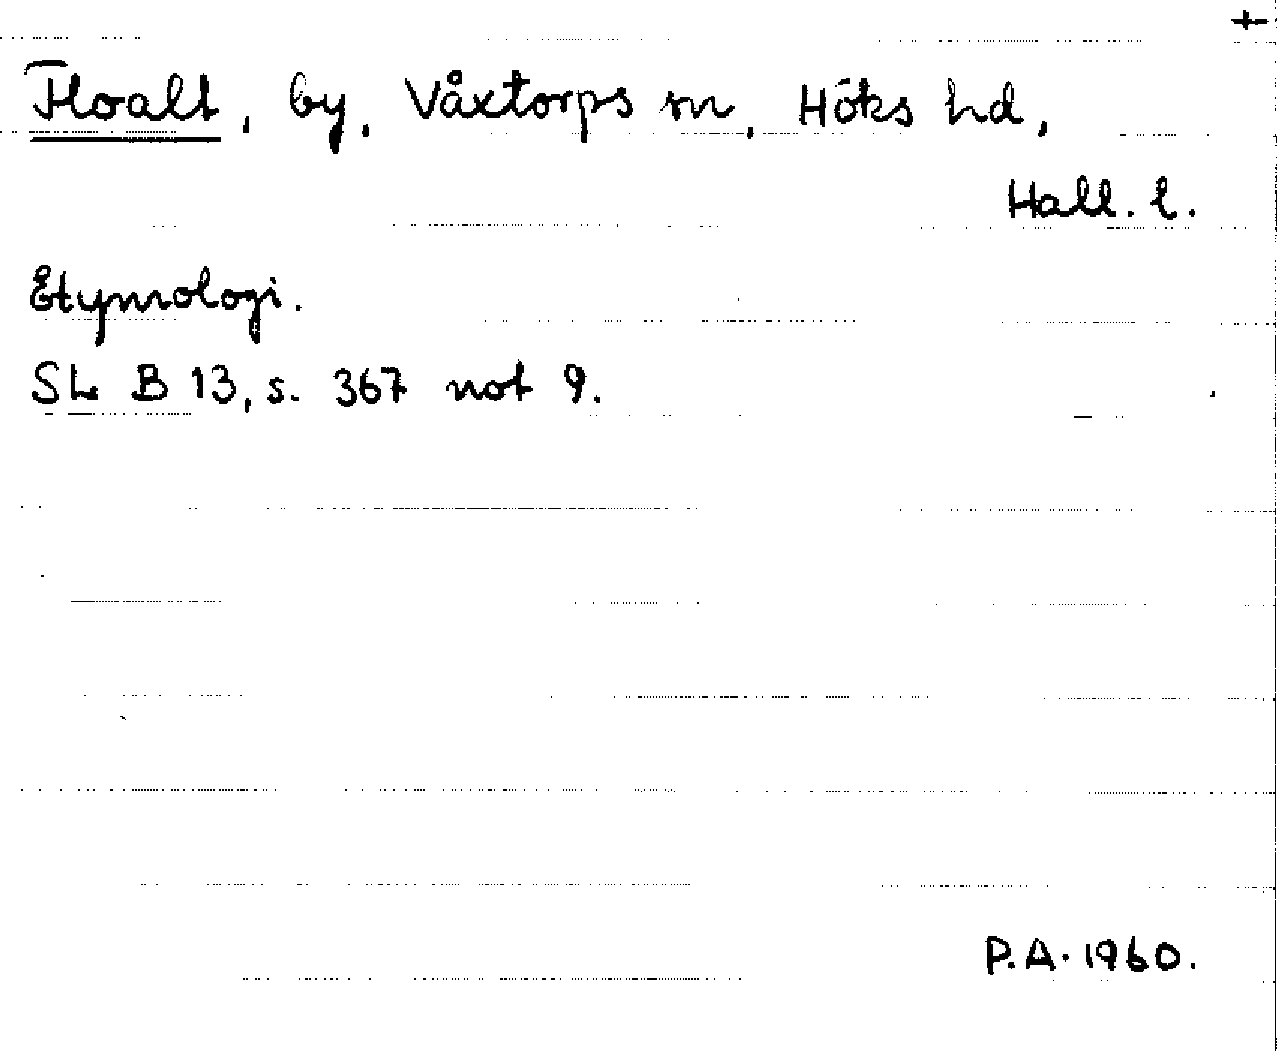 +
Floalt, by, Våxtorps sn, Höks hd,
Hall. l.
Etymologi.
SL B 13, s. 367 not 9.
P.A. 1960.